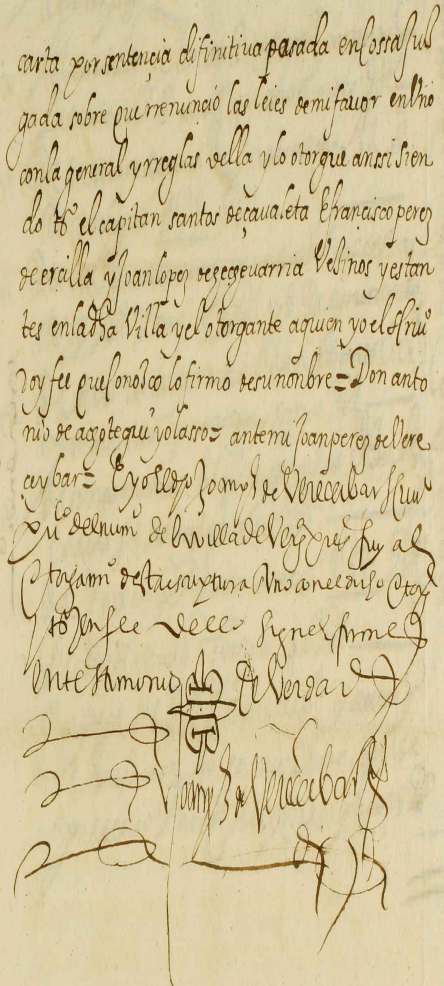 carta por sentençia difinitiva pasada en cossa Juz
gada sobre que rrenunçio las leies de mi fauor en Vno
con la general y rreglas della y lo otorgue anssi sien
do tos el capitan santos de çavaleta E françisco perez
de erçilla y Joan lopez de egeuarria Vesinos y estan
tes en la dha Villa y el otorgante a quien yo el Scriuo
Doy fee que conosco lo firmo de su nonbre = Don anto
nio de açotegui y olasso = ante mi Joan perez de Vere
çaybar = E yo el dho Joan pz de Vereçeibar Scriuo
puco del numo de la villa de fuy al
otorgamo desta scriptura en vno con el dicho otorgte
tos y en fee dello signe y firme
en testimonio de Verdad
Joan pz de Vereçeibar